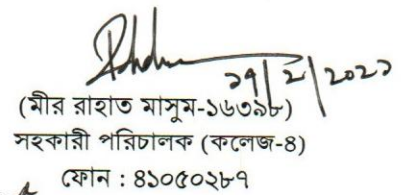 ২৭/2/২০২১
(মীর রাহাত মাসুম-১৬৩৯৮)
সহকারী পরিচালক (কলেজ-৪)
ফোন : ৪১০৫০২৮৭